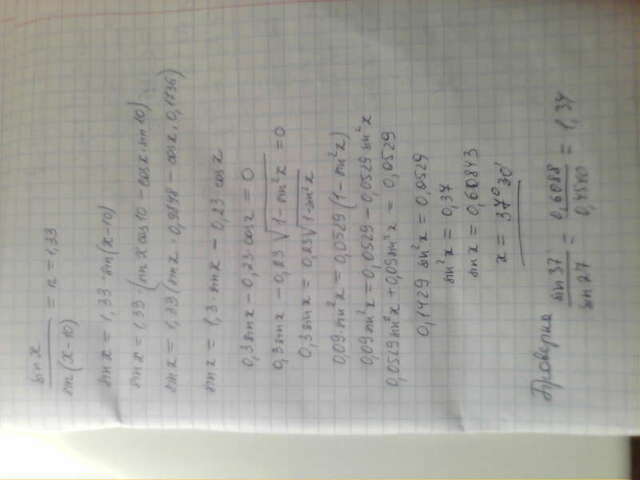 sin x / sin (x-10) = n = 1,33
sin x = 1,33 · sin (x-10)
sin x = 1,33 (sin x cos 10 - cos x · sin 10)
sin x = 1,33 (sin x · 0,9848 - cos x · 0,1736)
sin x = 1,3 · sin x - 0,23 · cos x
0,3 sin x - 0,23 · cos x = 0
0,3 sin x - 0,23 √(1 - sin²x) = 0
0,3 sin x = 0,23 √(1 - sin²x)
0,09 · sin²x = 0,0529 (1 - sin²x)
0,09 sin²x = 0,0529 - 0,0529 sin²x
0,0529 sin²x + 0,09 sin²x = 0,0529
0,1429 sin²x = 0,0529
sin²x = 0,37
sin x = 0,60843
x = 37° 30'
Проверка sin 37 / sin 27 = 0,6088 / 0,4540 = 1,34